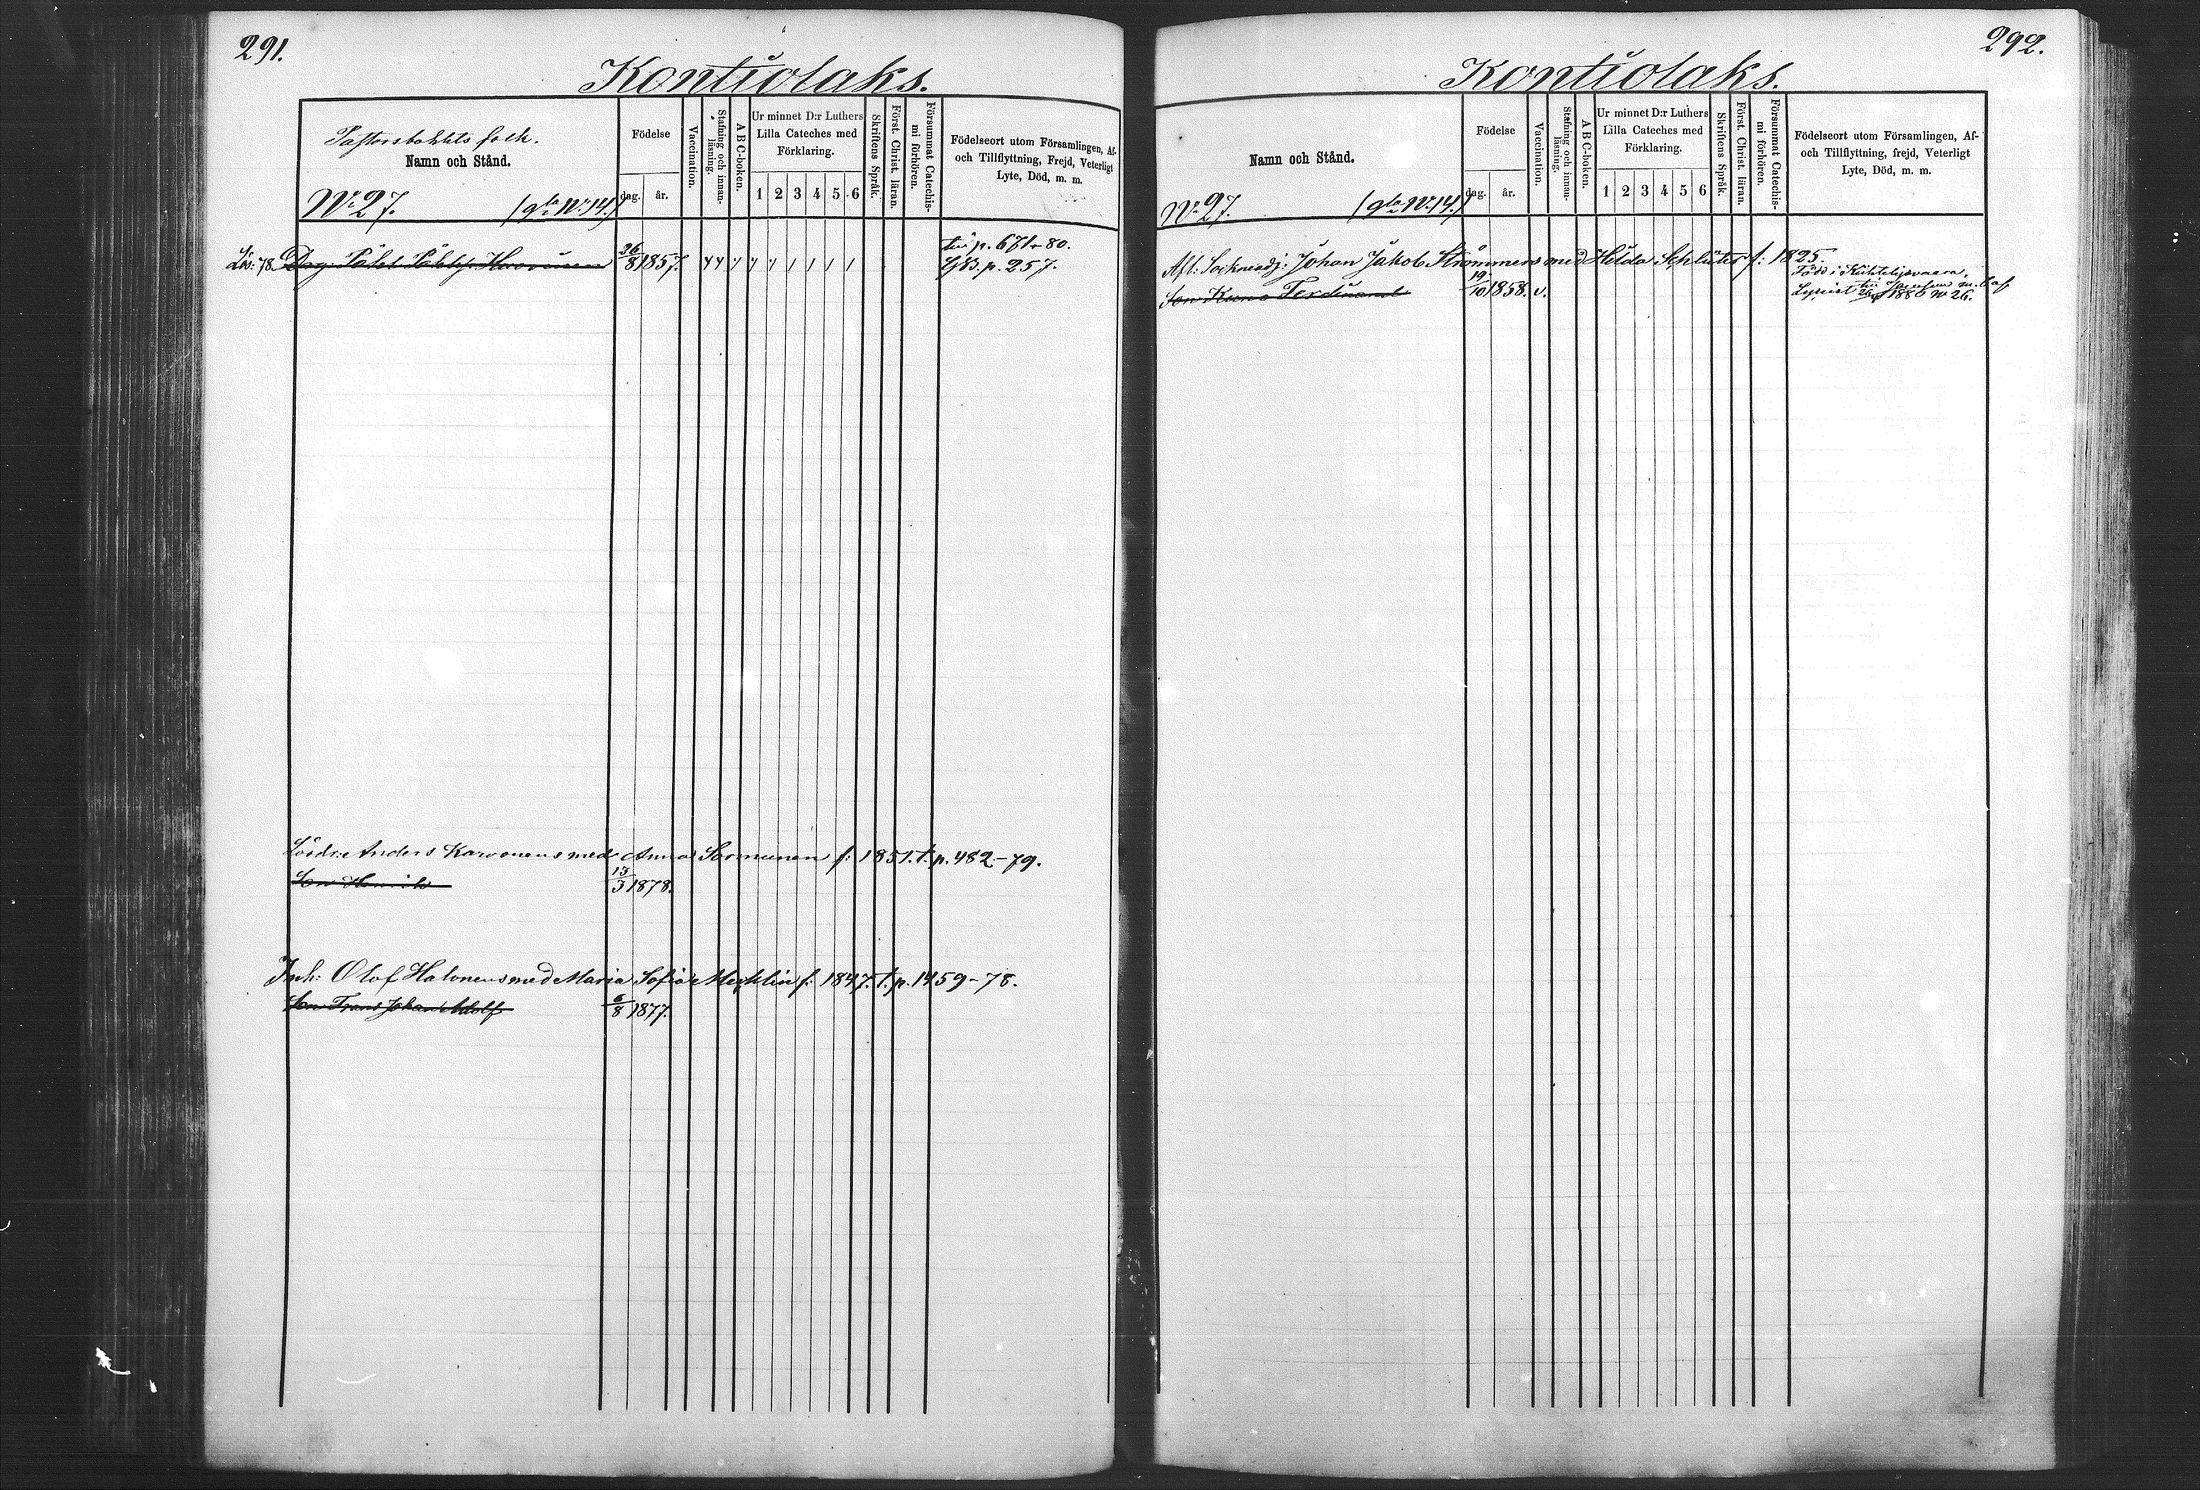 291.
Kontiolaks.
Pastorsbohlets folk.
Namn och Stånd.
No 27. (gla No 14.)
Födelse
dag. år.
Vaccination.
Stafning och innan-
läsning.
A B C-boken.
Ur minnet D:r Luthers
Lilla Cateches med
Förklaring.
1 2 3 4 5 6
Skriftens Språk.
Först. Christ. läran.
Försummat Catechis-
mi förhören.
Födelseort utom Församlingen, Af-
och Tillflyttning, Frejd, Veterligt
Lyte, Död, m. m.
till p. 671-80.
Lös: 78. Drg: 26/8 1857. p. 257.
Anders Karvonens med Anna Sormunen f: 1851. t. p. 482-79.
Son Henrik 13/3 1878.
Inh: Olof Halonens med Maria Sofia Meyklin f: 1847. t. p. 1459-78.
Son Frans Johan Adolf 6/8 1877.
292.
Kontiolaks.
Namn och Stånd.
No 27. (gla No 14.)
Födelse
dag. år.
Vaccination.
Stafning och innan-
läsning.
A B C-boken.
Ur minnet D:r Luthers
Lilla Cateches med
Förklaring.
1 2 3 4 5 6
Skriftens Språk.
Först. Christ. läran.
Försummat Catechis-
mi förhören.
Födelseort utom Församlingen, Af-
och Tillflyttning, frejd, Veterligt
Lyte, Död, m. m.
Afl: Sockneadj: Johan Jakob Strömmers med Hilda Schlüter f: 1825.
Född i Kiihtelysvaara.
Son Kuno Ferdinand 19/10 1858. v. Lyceist 1880 No 26.